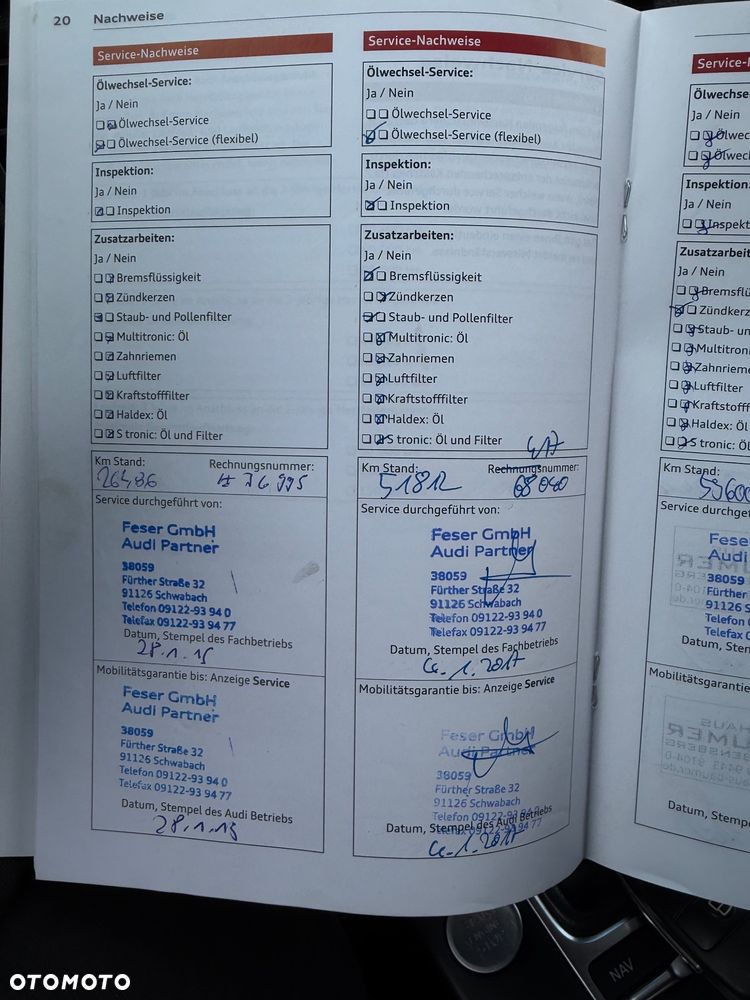 20 Nachweise
Service-Nachweise
Ölwechsel-Service:
Ja / Nein
Ölwechsel-Service
Ölwechsel-Service (flexibel)
Inspektion:
Ja / Nein
Inspektion
Zusatzarbeiten:
Ja / Nein
Bremsflüssigkeit
Zündkerzen
Staub- und Pollenfilter
Multitronic: Öl
Zahnriemen
Luftfilter
Kraftstofffilter
Haldex: Öl
S tronic: Öl und Filter
Km Stand: Rechnungsnummer:
26486
Service durchgeführt von:
Feser GmbH
Audi Partner
38059
Fürther Straße 32
91126 Schwabach
Telefon 09122-93 94 0
Telefax 09122-93 94 77
Datum, Stempel des Fachbetriebs
28.1.15
Mobilitätsgarantie bis: Anzeige Service
Feser GmbH
Audi Partner
38059
Fürther Straße 32
91126 Schwabach
Telefon 09122-93 94 0
Telefax 09122-93 94 77
Datum, Stempel des Audi Betriebs
28.1.15
Service-Nachweise
Ölwechsel-Service:
Ja / Nein
Ölwechsel-Service
Ölwechsel-Service (flexibel)
Inspektion:
Ja / Nein
Inspektion
Zusatzarbeiten:
Ja / Nein
Bremsflüssigkeit
Zündkerzen
Staub- und Pollenfilter
Multitronic: Öl
Zahnriemen
Luftfilter
Kraftstofffilter
Haldex: Öl
S tronic: Öl und Filter
417
Km Stand: Rechnungsnummer:
51812 68040
Service durchgeführt von:
Feser GmbH
Audi Partner
38059
Fürther Straße 32
91126 Schwabach
Telefon 09122-93 94 0
Telefax 09122-93 94 77
Datum, Stempel des Fachbetriebs
1.2017
Mobilitätsgarantie bis: Anzeige Service
Feser GmbH
Audi Partner
38059
Fürther Straße 32
91126 Schwabach
Telefon 09122-93 94 0
Telefax 09122-93 94 77
Datum, Stempel des Audi Betriebs
1.2017
Service-N
Ölwechse
Ja / Nein
Ölwec
Ölwec
Inspektion:
Ja / Nein
Inspekt
Zusatzarbeit
Ja / Nein
Bremsflü
Zündkerz
Staub- un
Multitron
Zahnrieme
Luftfilter
Kraftstofff
Haldex: Öl
S tronic: Öl
Km Stand:
59600
Service durchgef
Fese
Audi
38059
Fürther
91126 S
Telefon
Telefax
Datum, Sten
Mobilitätsgarantie
Datum, Stemp
NAV
OTOMOTO